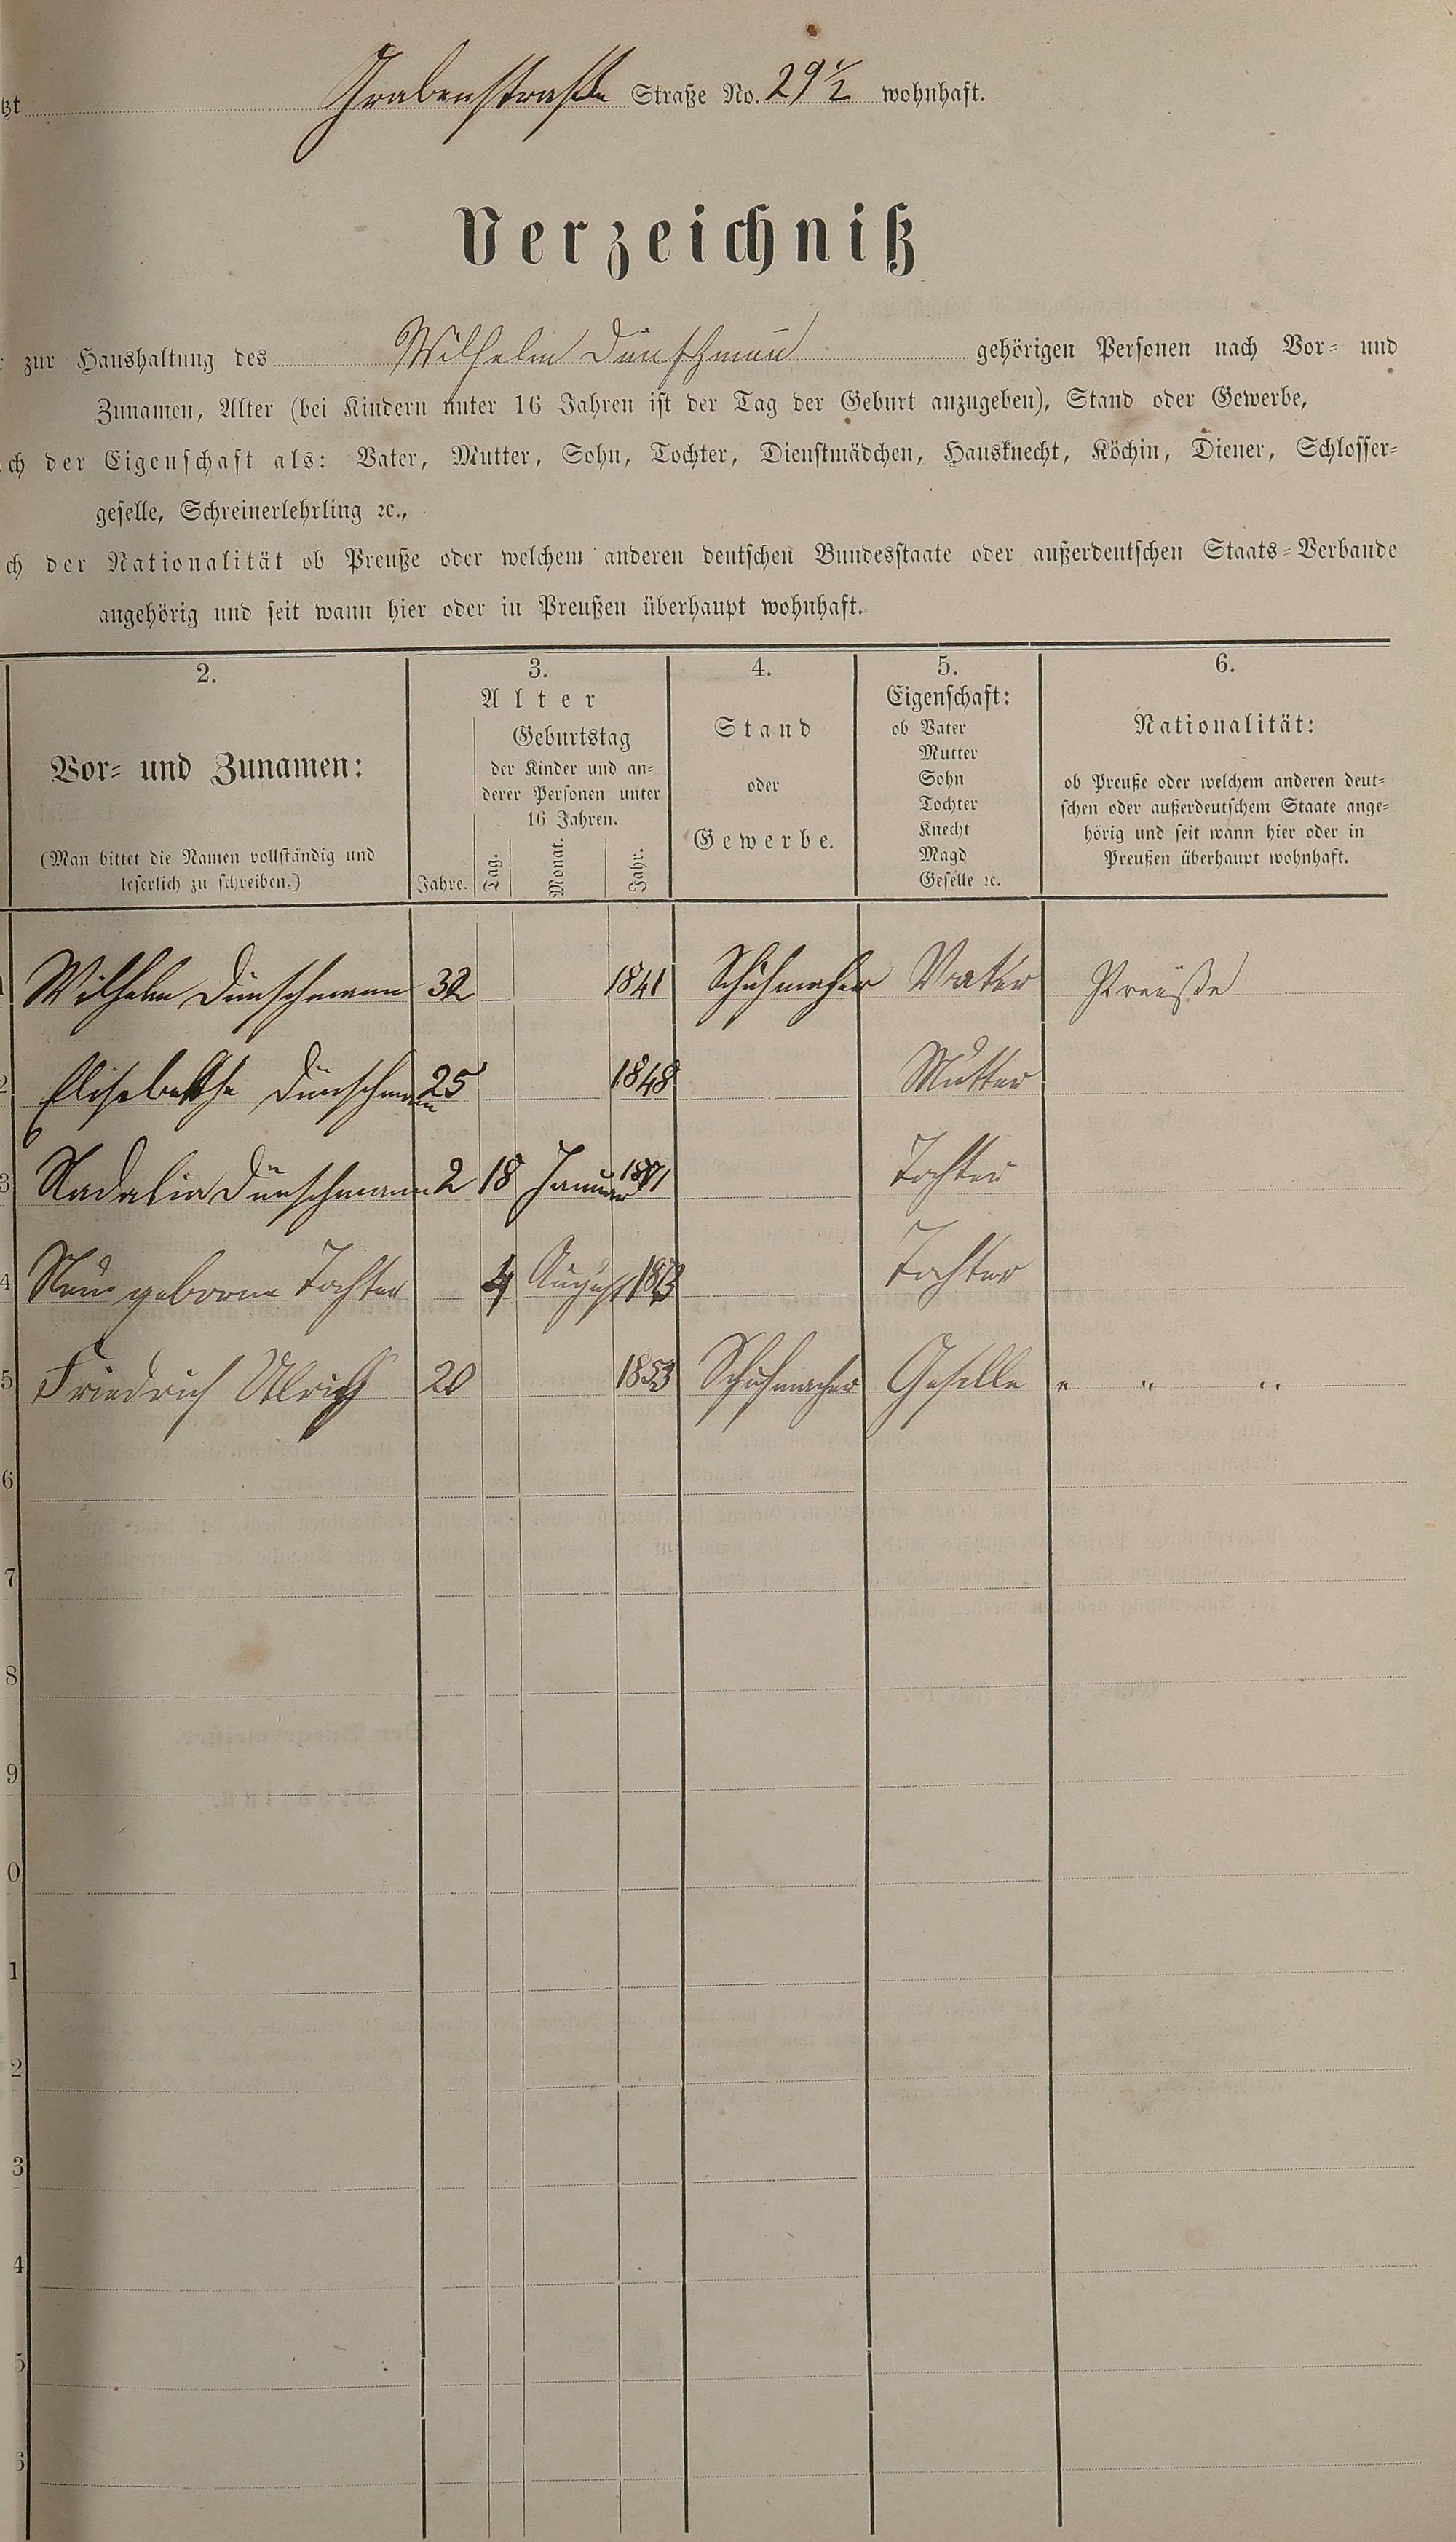 tzt Grabenstraße Straße No. 29 1/2 wohnhaft.
Verzeichniß
zur Haushaltung des Wilhelm Dünschmann gehörigen Personen nach Vor- und
Zunamen, Alter (bei Kindern unter 16 Jahren ist der Tag der Geburt anzugeben), Stand oder Gewerbe,
ch der Eigenschaft als: Vater, Mutter, Sohn, Tochter, Dienstmädchen, Hausknecht, Köchin, Diener, Schlosser-
geselle, Schreinerlehrling ꝛc.,
ch der Nationalität ob Preuße oder welchem anderen deutschen Bundesstaate oder außerdeutschen Staats-Verbande
angehörig und seit wann hier oder in Preußen überhaupt wohnhaft.
2.
Vor- und Zunamen:
(Man bittet die Namen vollständig und
leserlich zu schreiben.)
3.
Alter
Geburtstag
der Kinder und an-
derer Personen unter
16 Jahren.
Jahre. Tag. Monat. Jahr.
4.
Stand
oder
Gewerbe.
5.
Eigenschaft:
ob Vater
Mutter
Sohn
Tochter
Knecht
Magd
Geselle ꝛc.
6.
Nationalität:
ob Preuße oder welchem anderen deut-
schen oder außerdeutschem Staate ange-
hörig und seit wann hier oder in
Preußen überhaupt wohnhaft.
1 Wilhelm Dünschmann 32 1841 Schuhmacher Vater Preuße
2 Elisabethe Dünschmann 25 1848 Mutter
3 Nadalia Dünschmann 2 18 Januar 1871 Tochter
4 Neu geborne Tochter 4 August 1873 Tochter
5 Friedrich Ulrich 20 1853 Schuhmacher Geselle " " "
6
7
8
9
0
1
2
3
4
5
6